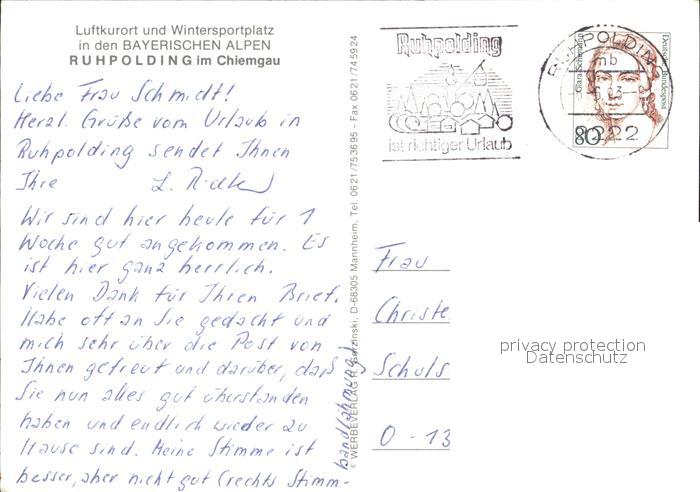 Luftkurort und Wintersportplatz
in den BAYERISCHEN ALPEN
RUHPOLDING im Chiemgau
Liebe Frau Schmidt!
Herzl. Grüße vom Urlaub in
Ruhpolding sendet Ihnen
Ihre L.
Wir sind hier heute für 1
Woche gut angekommen. Es
ist hier ganz herrlich.
Vielen Dank für Ihren Brief.
Habe oft an Sie gedacht und
mich sehr über die Post von
Ihnen gefreut und darüber, daß
Sie nun alles gut überstanden
haben und endlich wieder zu
Hause sind. Meine Stimme ist
besser, aber nicht gut (rechts Stimm-
bandlähmung).
© WERBEVERLAG D-68305 Mannheim, Tel. 0621/753695 - Fax 0621/745924
Ruhpolding
ist richtiger Urlaub
RUHPOLDING
mb
8222
Clara Schumann
Deutsche Bundespost
80
Frau
Christe
Schuls
O-13
privacy protection
Datenschutz